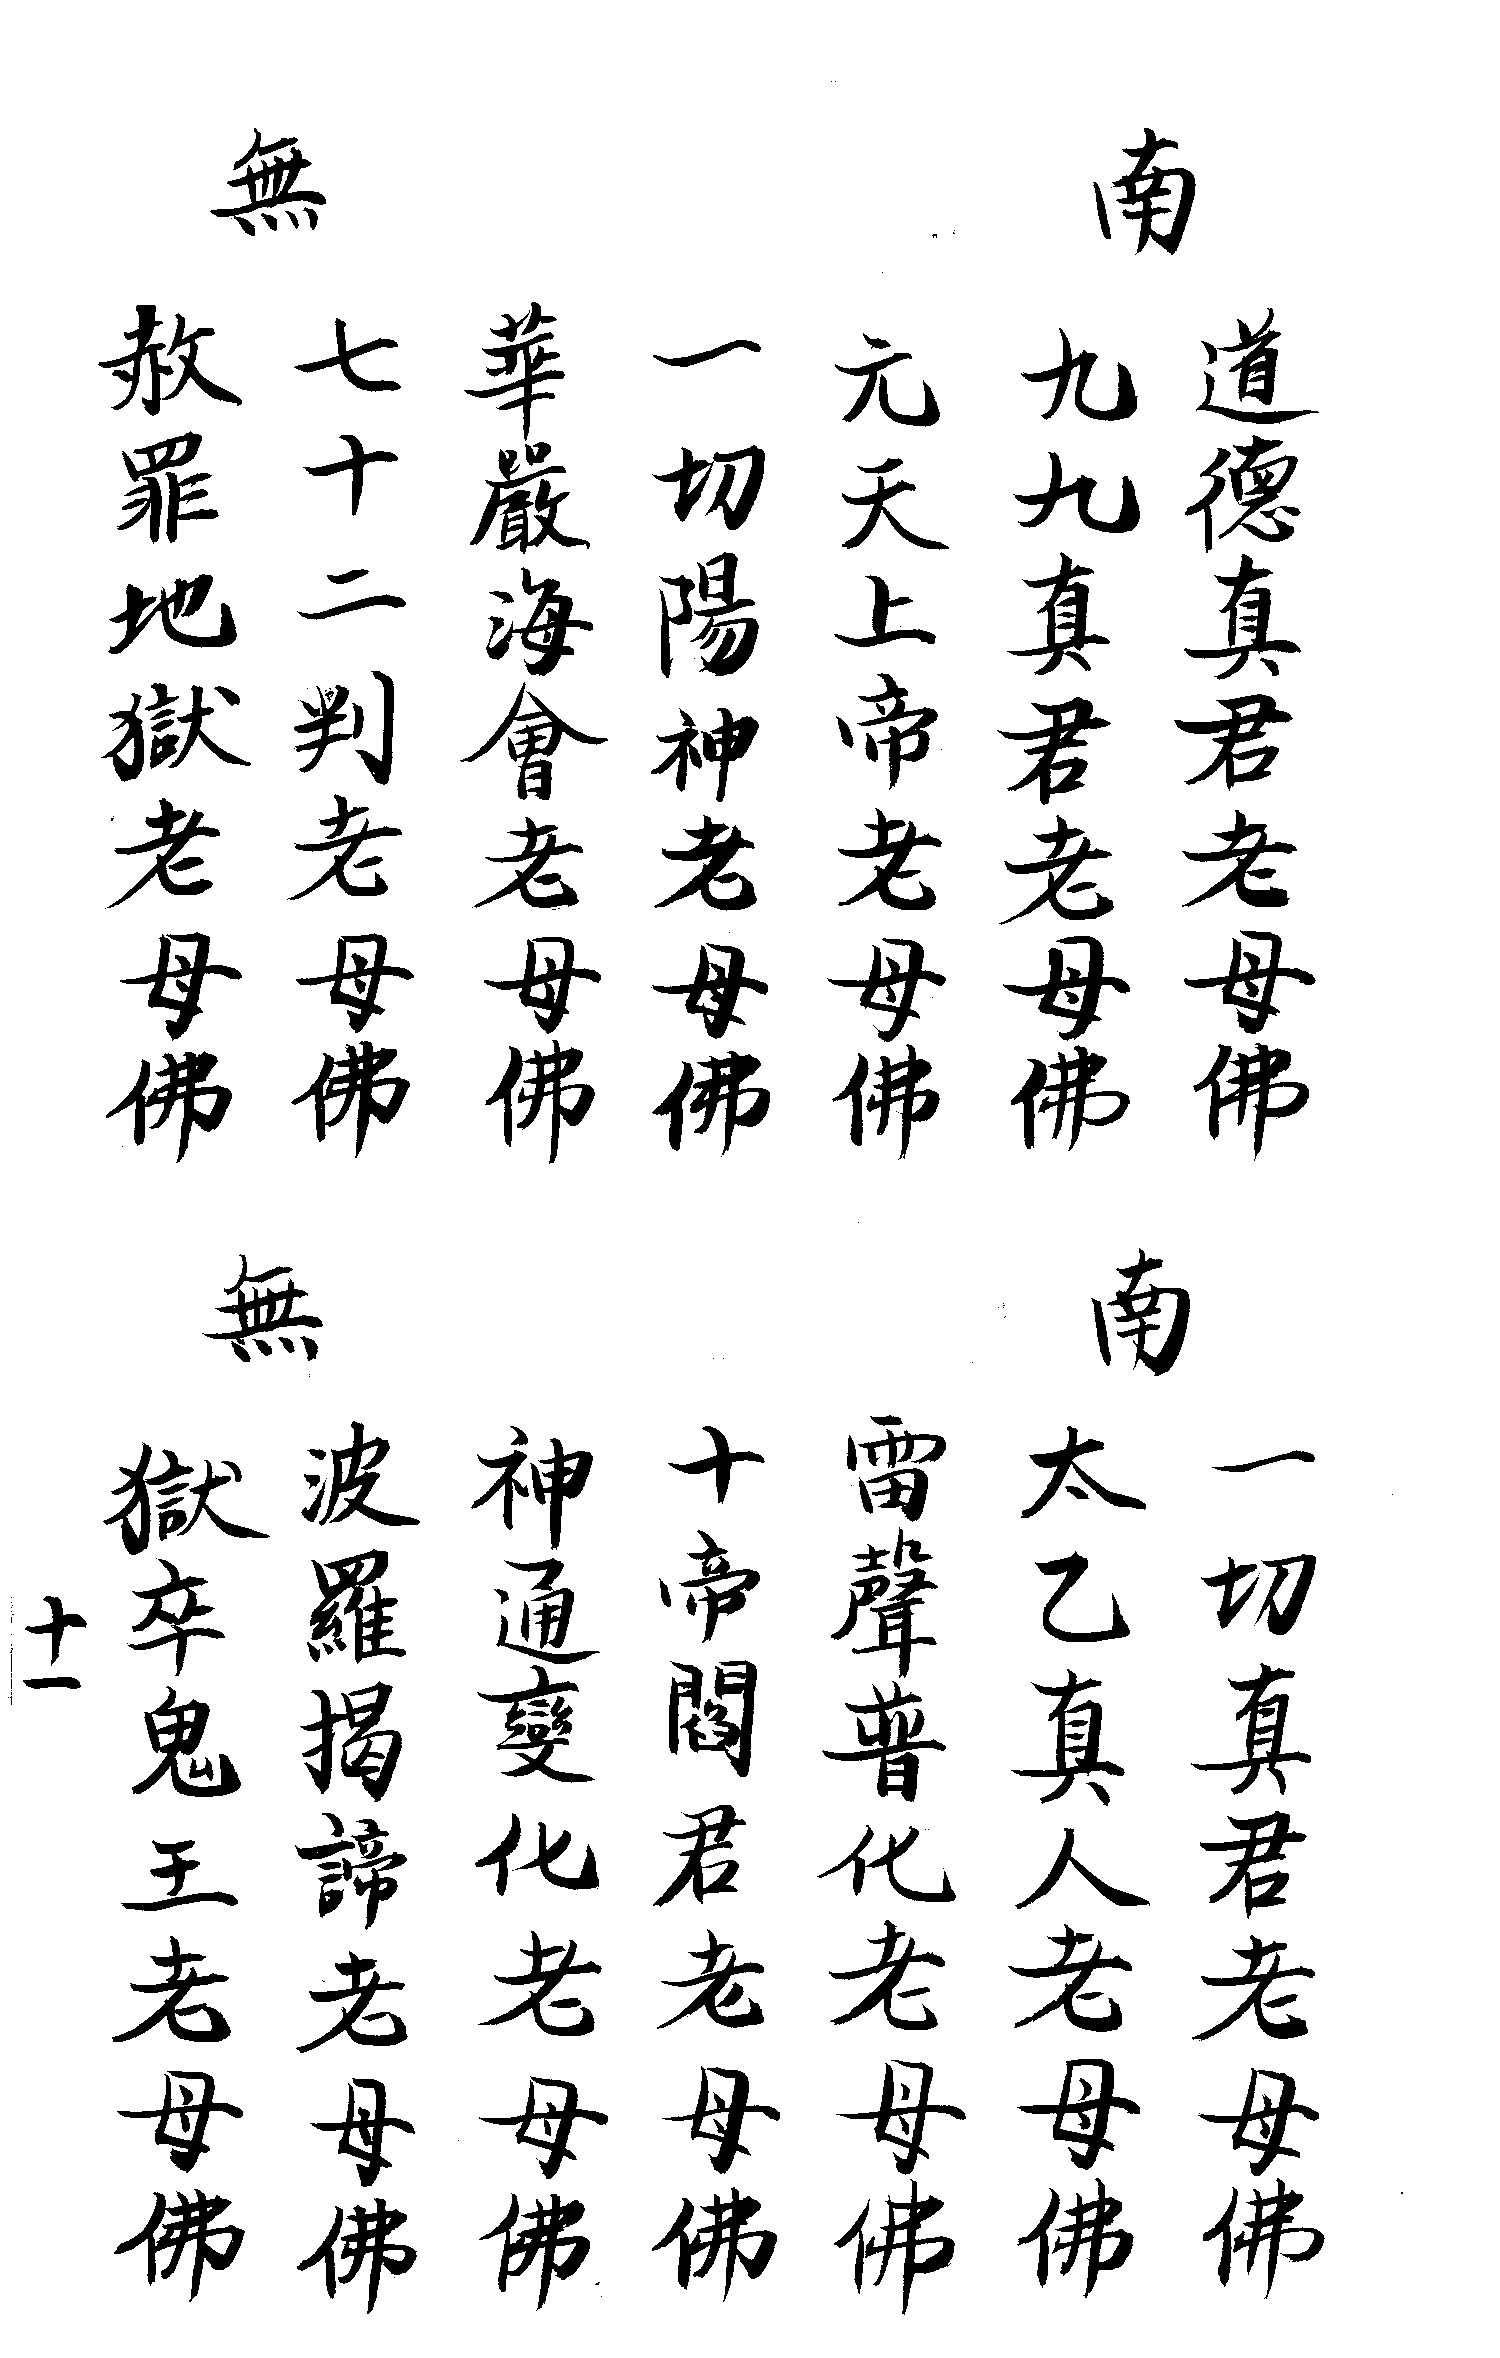 南無
道德真君老母佛
九九真君老母佛
元天上帝老母佛
一切陽神老母佛
華嚴海會老母佛
七十二判老母佛
赦罪地獄老母佛
南無
一切真君老母佛
太乙真人老母佛
雷聲普化老母佛
十帝閻君老母佛
神通變化老母佛
波羅揭諦老母佛
獄卒鬼王老母佛
十一